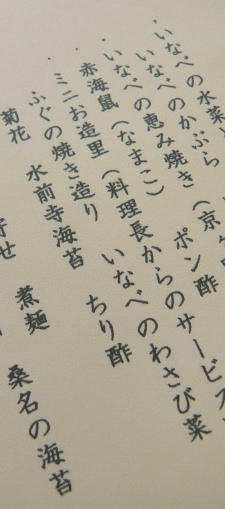 ・いなべの水菜
いなべのかぶら
・いなべの恵み焼き (京
赤海鼠 (なまこ) ポン酢
・ミニお造里 (料理長からのサービス
・ふぐの焼き造り いなべのわさび菜
水前寺海苔 ちり酢
菊花
寄せ 煮麺 桑名の海苔